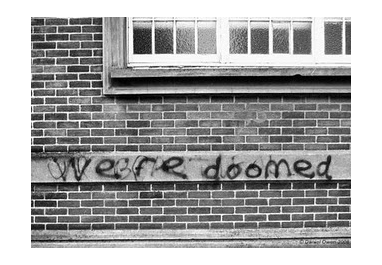 We are doomed
© Daniel Owen 2008